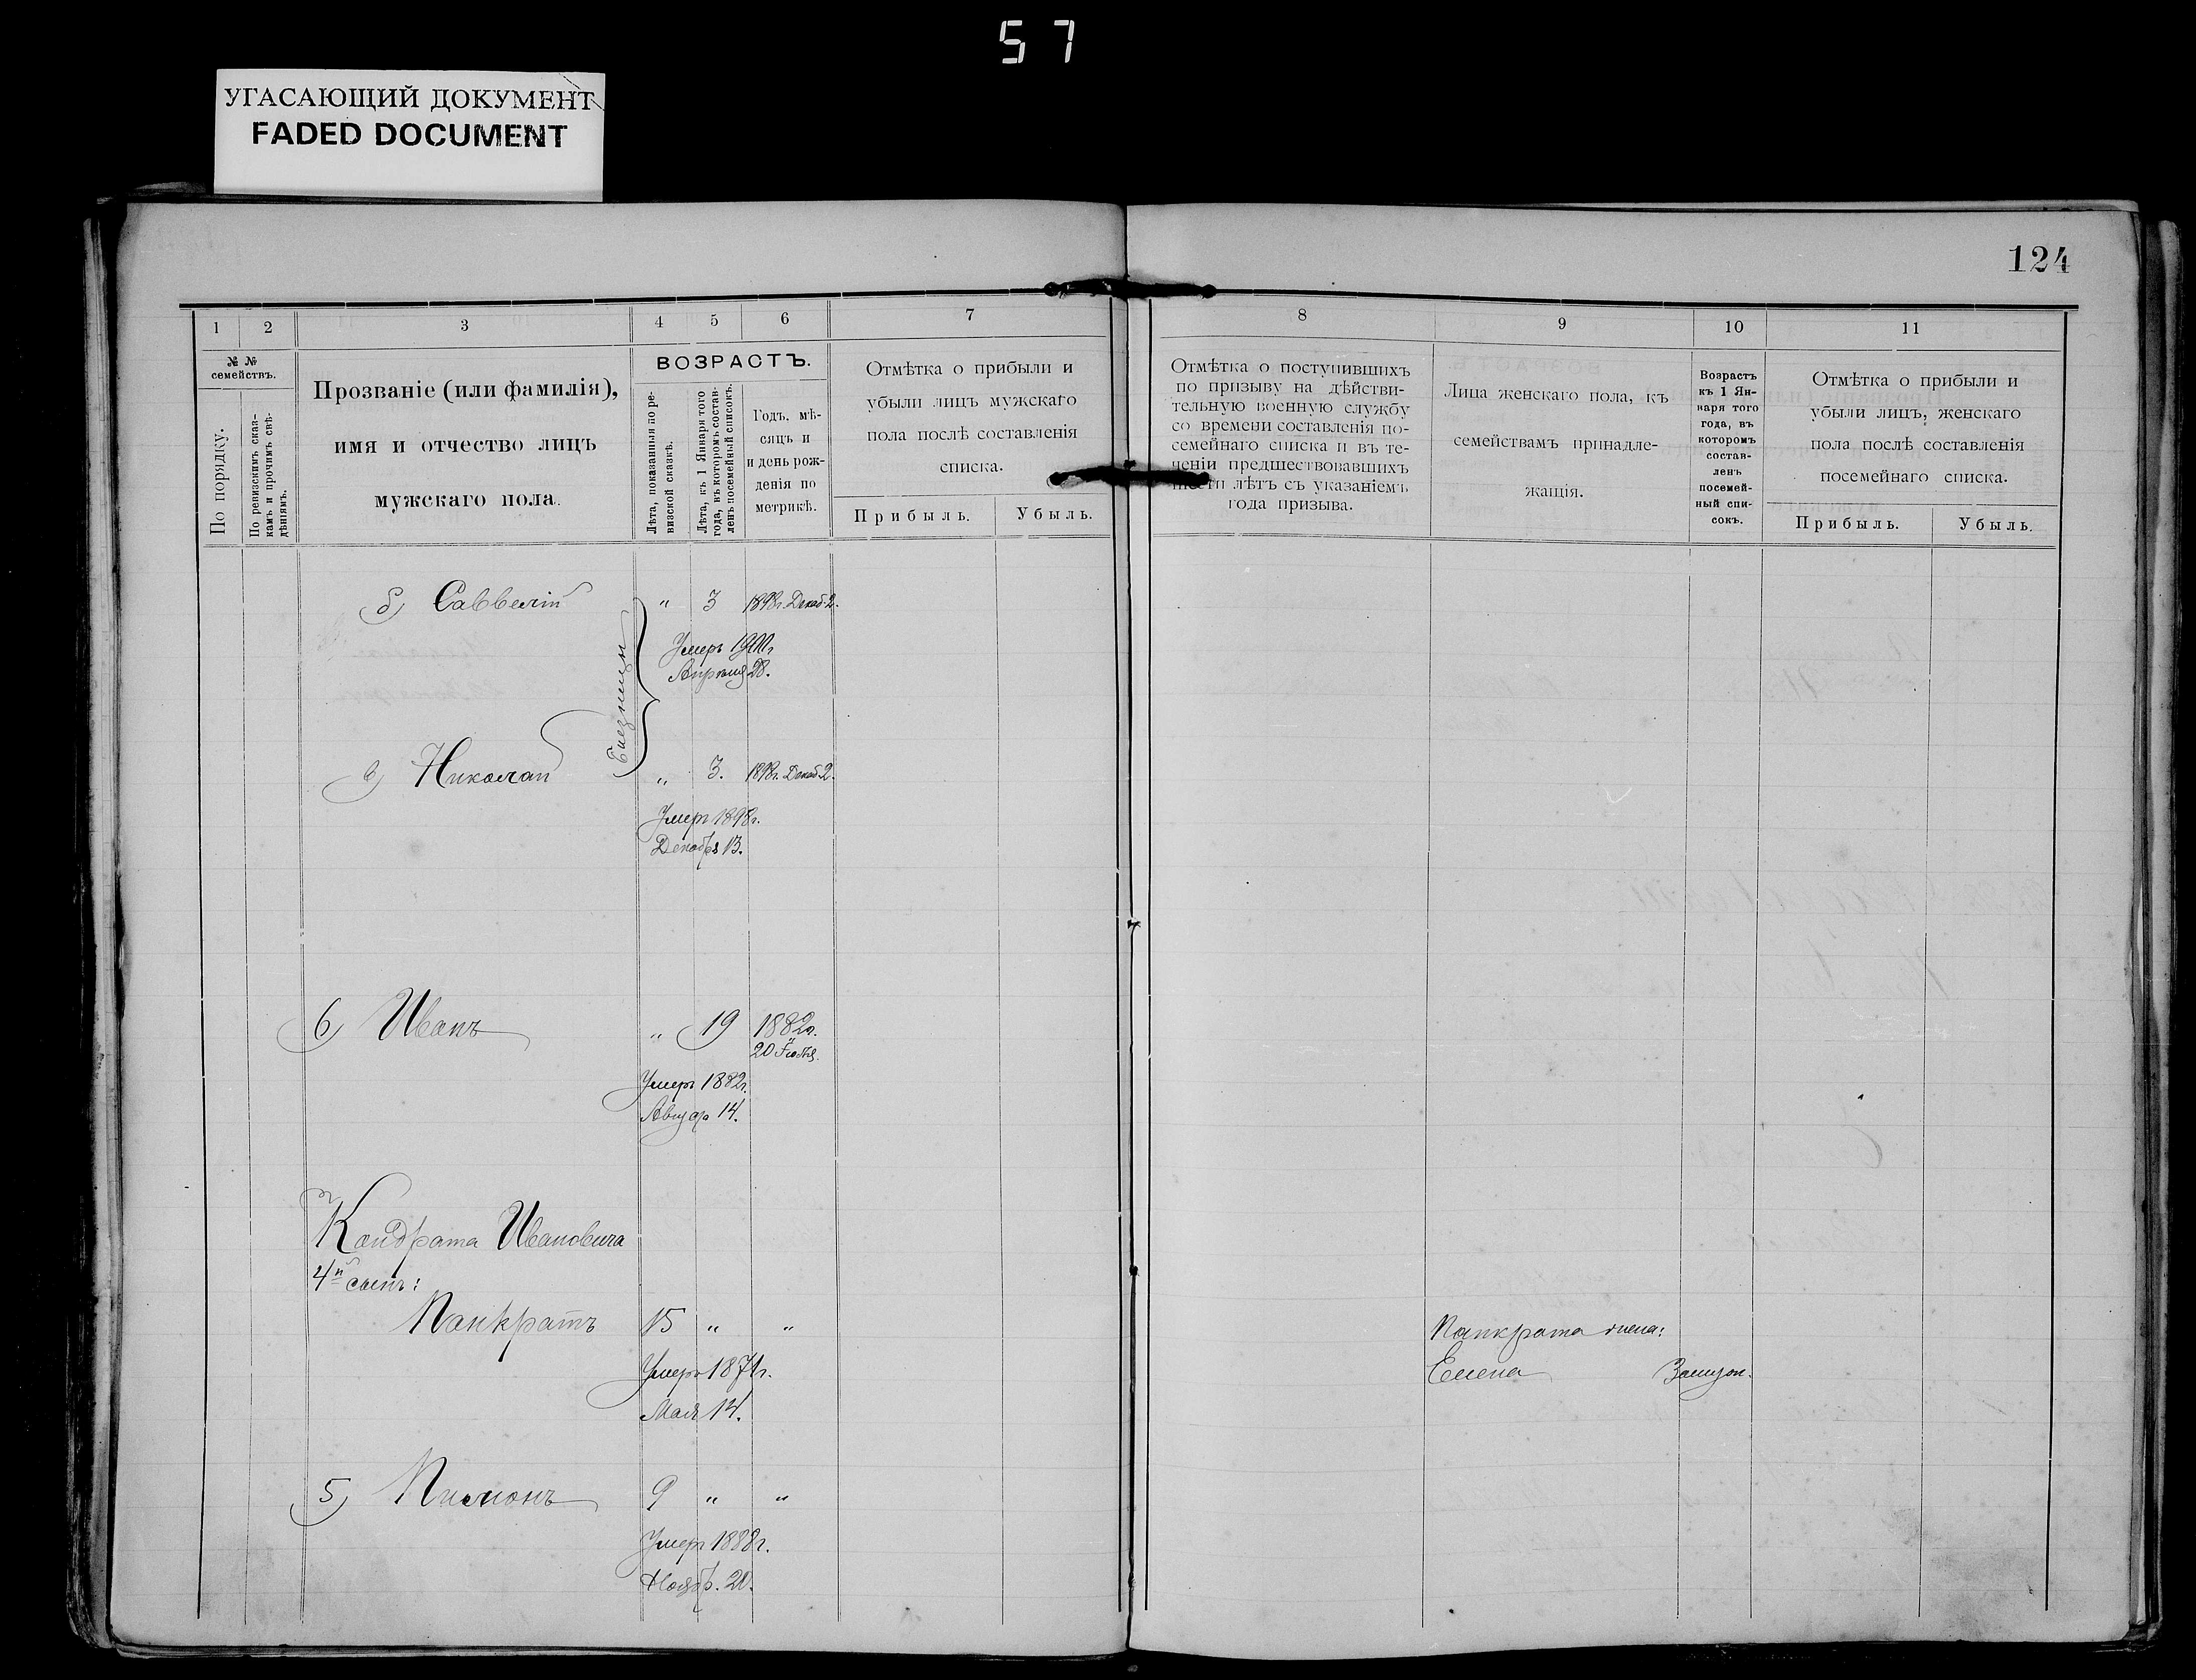 57
УГАСАЮЩИЙ ДОКУМЕНТ
FADED DOCUMENT
124
1 2 3 4 5 6 7
8 9 10 11
№ №
семействъ.
По порядку.
По ревизскимъ сказ-
камъ и прочимъ свѣ-
дѣніямъ.
Прозваніе (или фамилія),
имя и отчество лицъ
мужскаго пола.
ВОЗРАСТЪ.
Лѣта, показанныя по ре-
визской сказкѣ.
Лѣта, къ 1 Января того
года, въ которомъ состав-
ленъ посемейный списокъ.
Годъ, мѣ-
сяцъ и
и день рож-
денія по
метрикѣ.
Отмѣтка о прибыли и
убыли лицъ мужскаго
пола послѣ составленія
списка.
Прибыль. Убыль.
Отмѣтка о поступившихъ
по призыву на дѣйстви-
тельную военную службу
со времени составленія по-
семейнаго списка и въ те-
ченіи предшествовавшихъ
шести лѣтъ съ указаніемъ
года призыва.
Лица женскаго пола, къ
семействамъ принадле-
жащія.
Возрастъ
къ 1 Ян-
варя того
года, въ
которомъ
состав-
ленъ
посемей-
ный спи-
сокъ.
Отмѣтка о прибыли и
убыли лицъ, женскаго
пола послѣ составленія
посемейнаго списка.
Прибыль. Убыль.
б) Савватій „ 3 1898г. Декаб. 2.
Умеръ 1900г.
Апрѣля 28.
Близнецы
в) Николай „ 3. 1898г. Декаб. 2.
Умеръ 1898г.
Декабря 13.
6) Иванъ „ 19 1882г.
20 Іюля.
Умеръ 1882г.
Август 14.
Кондрата Ивановича
4й сынъ:
Панкратъ 15 „ „
Умеръ 1871г.
Мая 14.
Панкрата жена:
Елена Замуж.
5) Пимонъ 9 „ „
Умеръ 1888г.
Ноябр. 20.